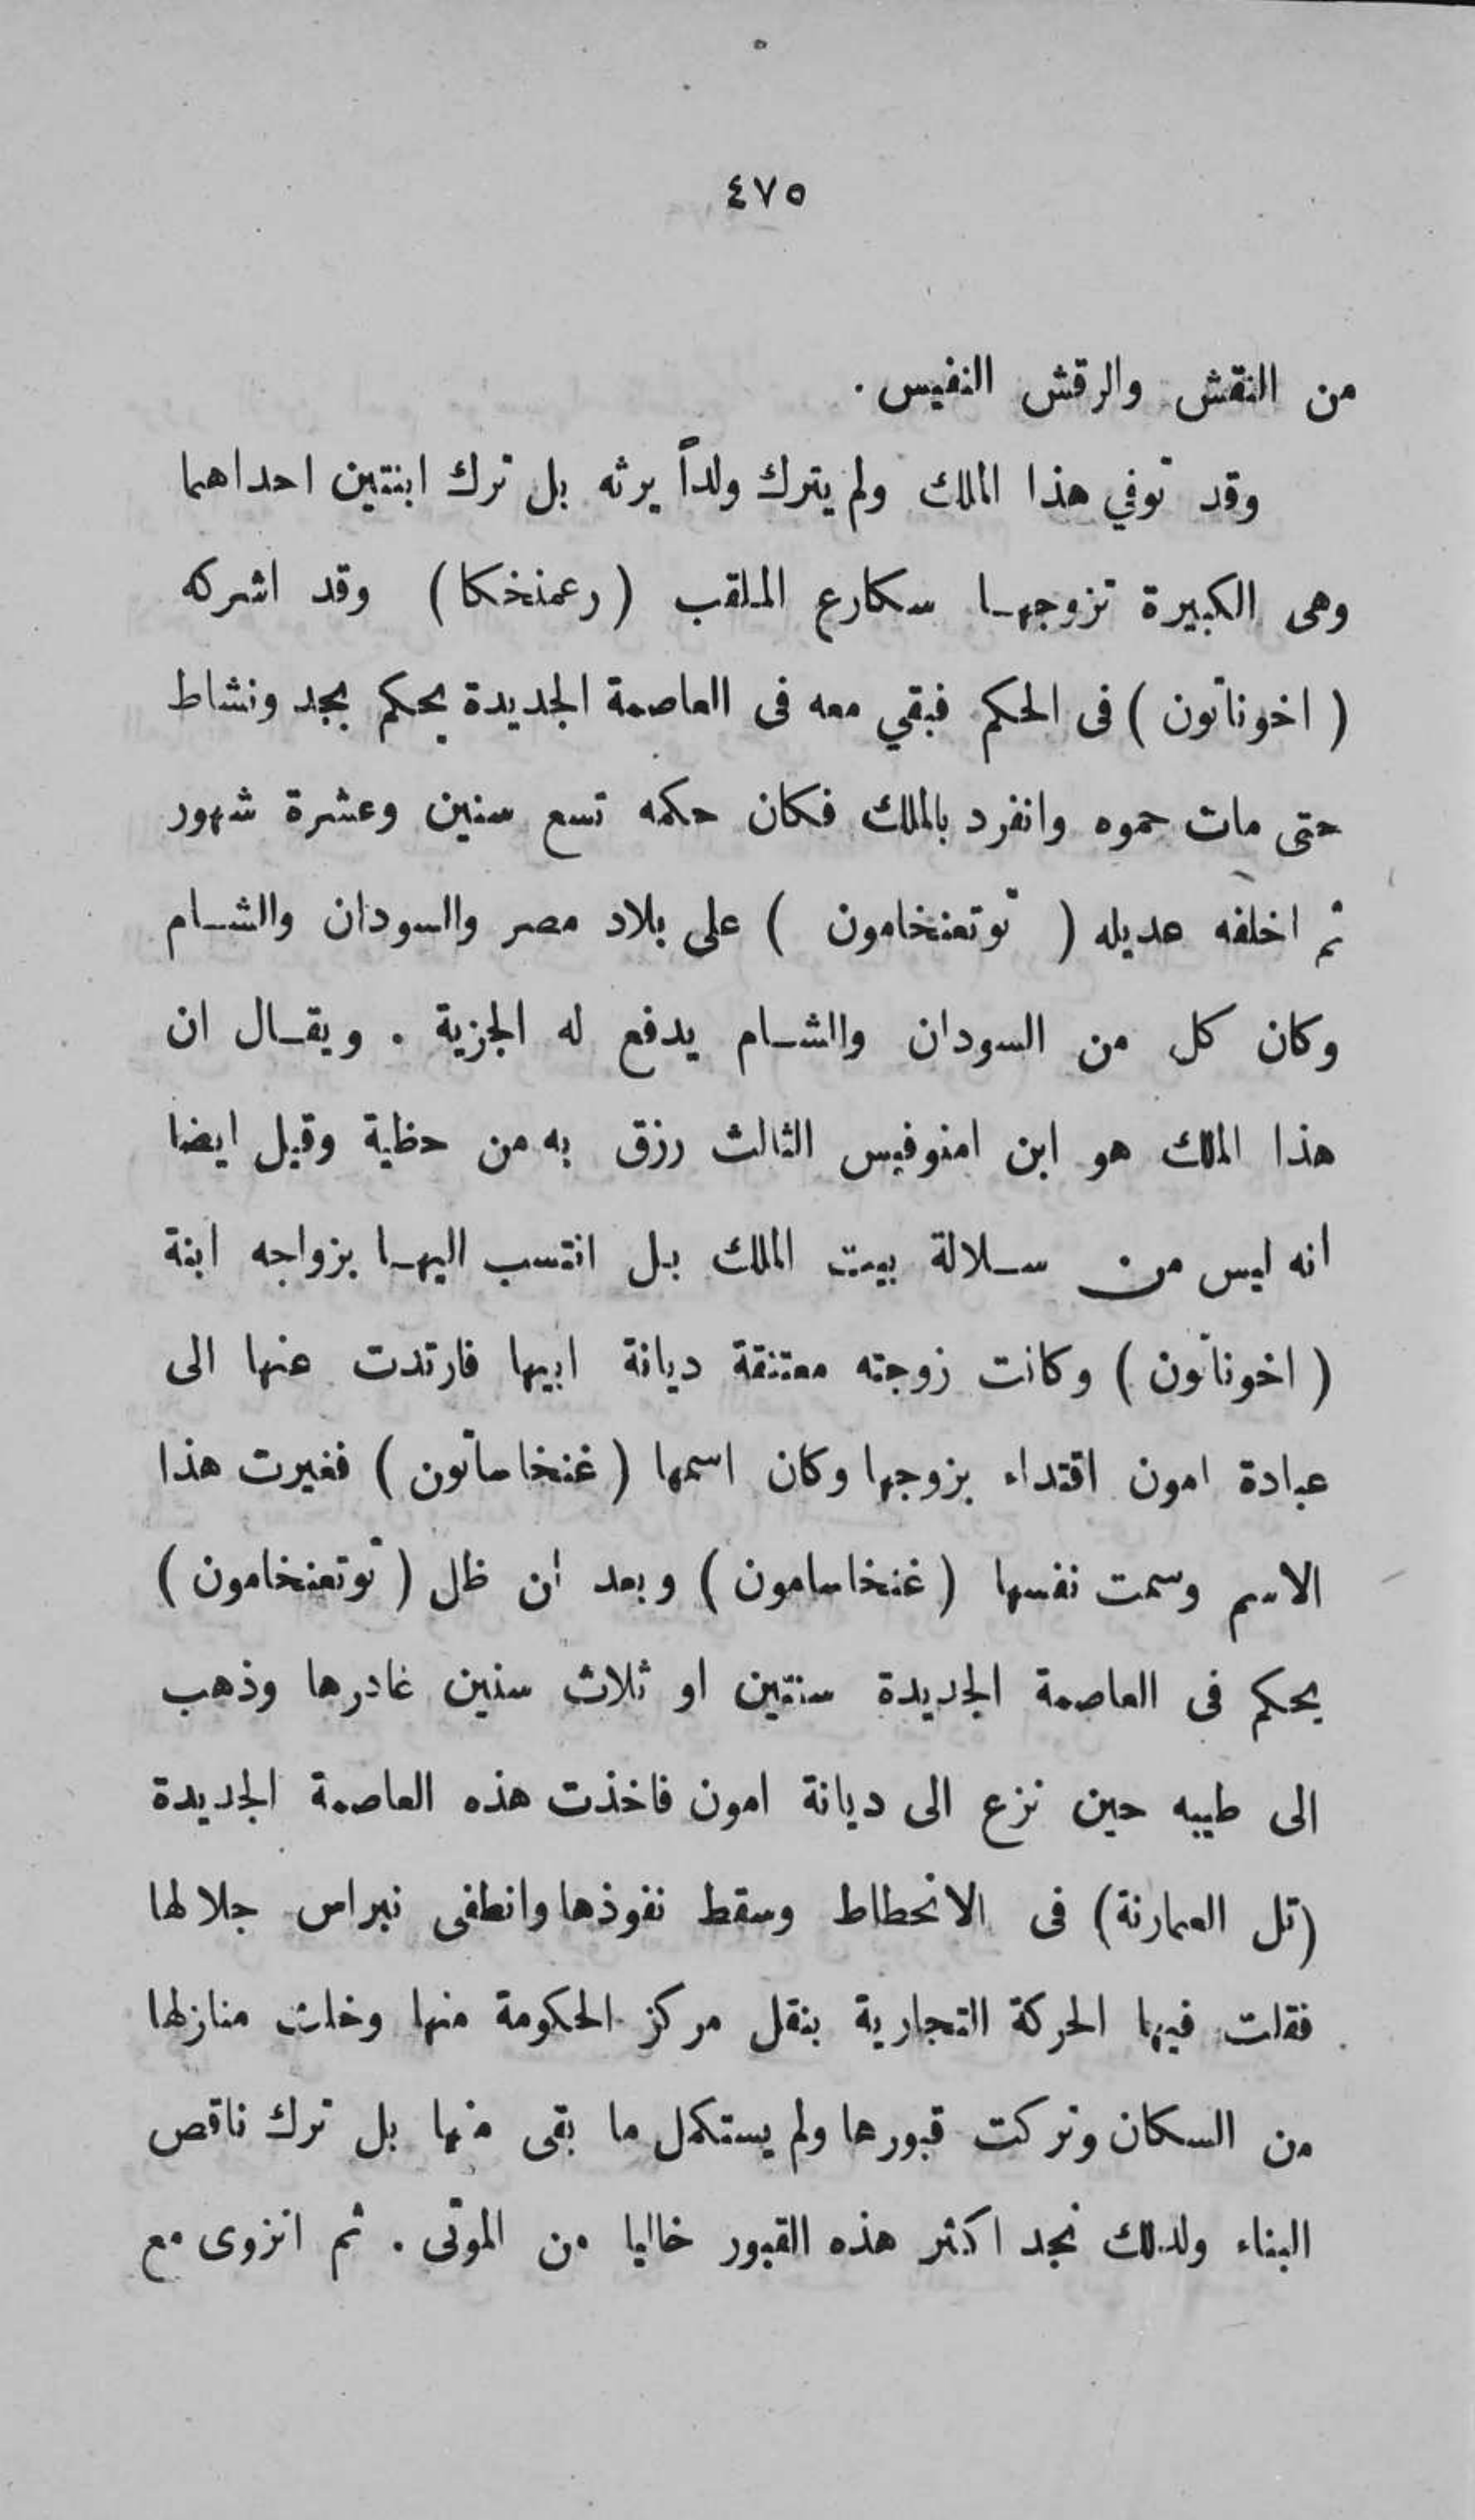 ٤٧٥
من النقش والرقش النفيس.
وقد توفي هذا الملك ولم يترك ولداً يرثه بل ترك ابنتين احداهما
وهى الكبيرة تزوجها سكارع الملقب (رعمنخكا) وقد اشركه
( اخوناتون ) فى الحكم فبقي معه فى العاصمة الجديدة يحكم بجد ونشاط
حتى مات حموه وانفرد بالملك فكان حكمه تسع سنين وعشرة شهور
ثم اخلفه عديله ( توتعنخامون ) على بلاد مصر والسودان والشام
وكان كل من السودان والشام يدفع له الجزية . ويقال ان
هذا الملك هو ابن امنوفيس الثالث رزق به من حظية وقيل ايضا
انه ليس من سلالة بيت الملك بل انتسب اليها بزواجه ابنة
( اخوناتون ) وكانت زوجته معتنقة ديانة ابيها فارتدت عنها الى
عبادة امون اقتداء بزوجها وكان اسمها (غنخاساتون ) فغيرت هذا
الاسم وسمت نفسها (غنخاسامون ) وبعد ان ظل ( توتعنخامون )
يحكم فى العاصمة الجديدة سنتين او ثلاث سنين غادرها وذهب
الى طيبه حين نزع الى ديانة امون فاخذت هذه العاصمة الجديدة
(تل العمارنة) فى الانحطاط وسقط نفوذها وانطفى نبراس جلالها
فقلت فيها الحركة التجارية بنقل مركز الحكومة منها وخلت منازلها
من السكان وتركت قبورها ولم يستكمل ما بقى منها بل ترك ناقص
البناء ولذلك نجد اكثر هذه القبور خاليا من الموتى . ثم انزوى مع